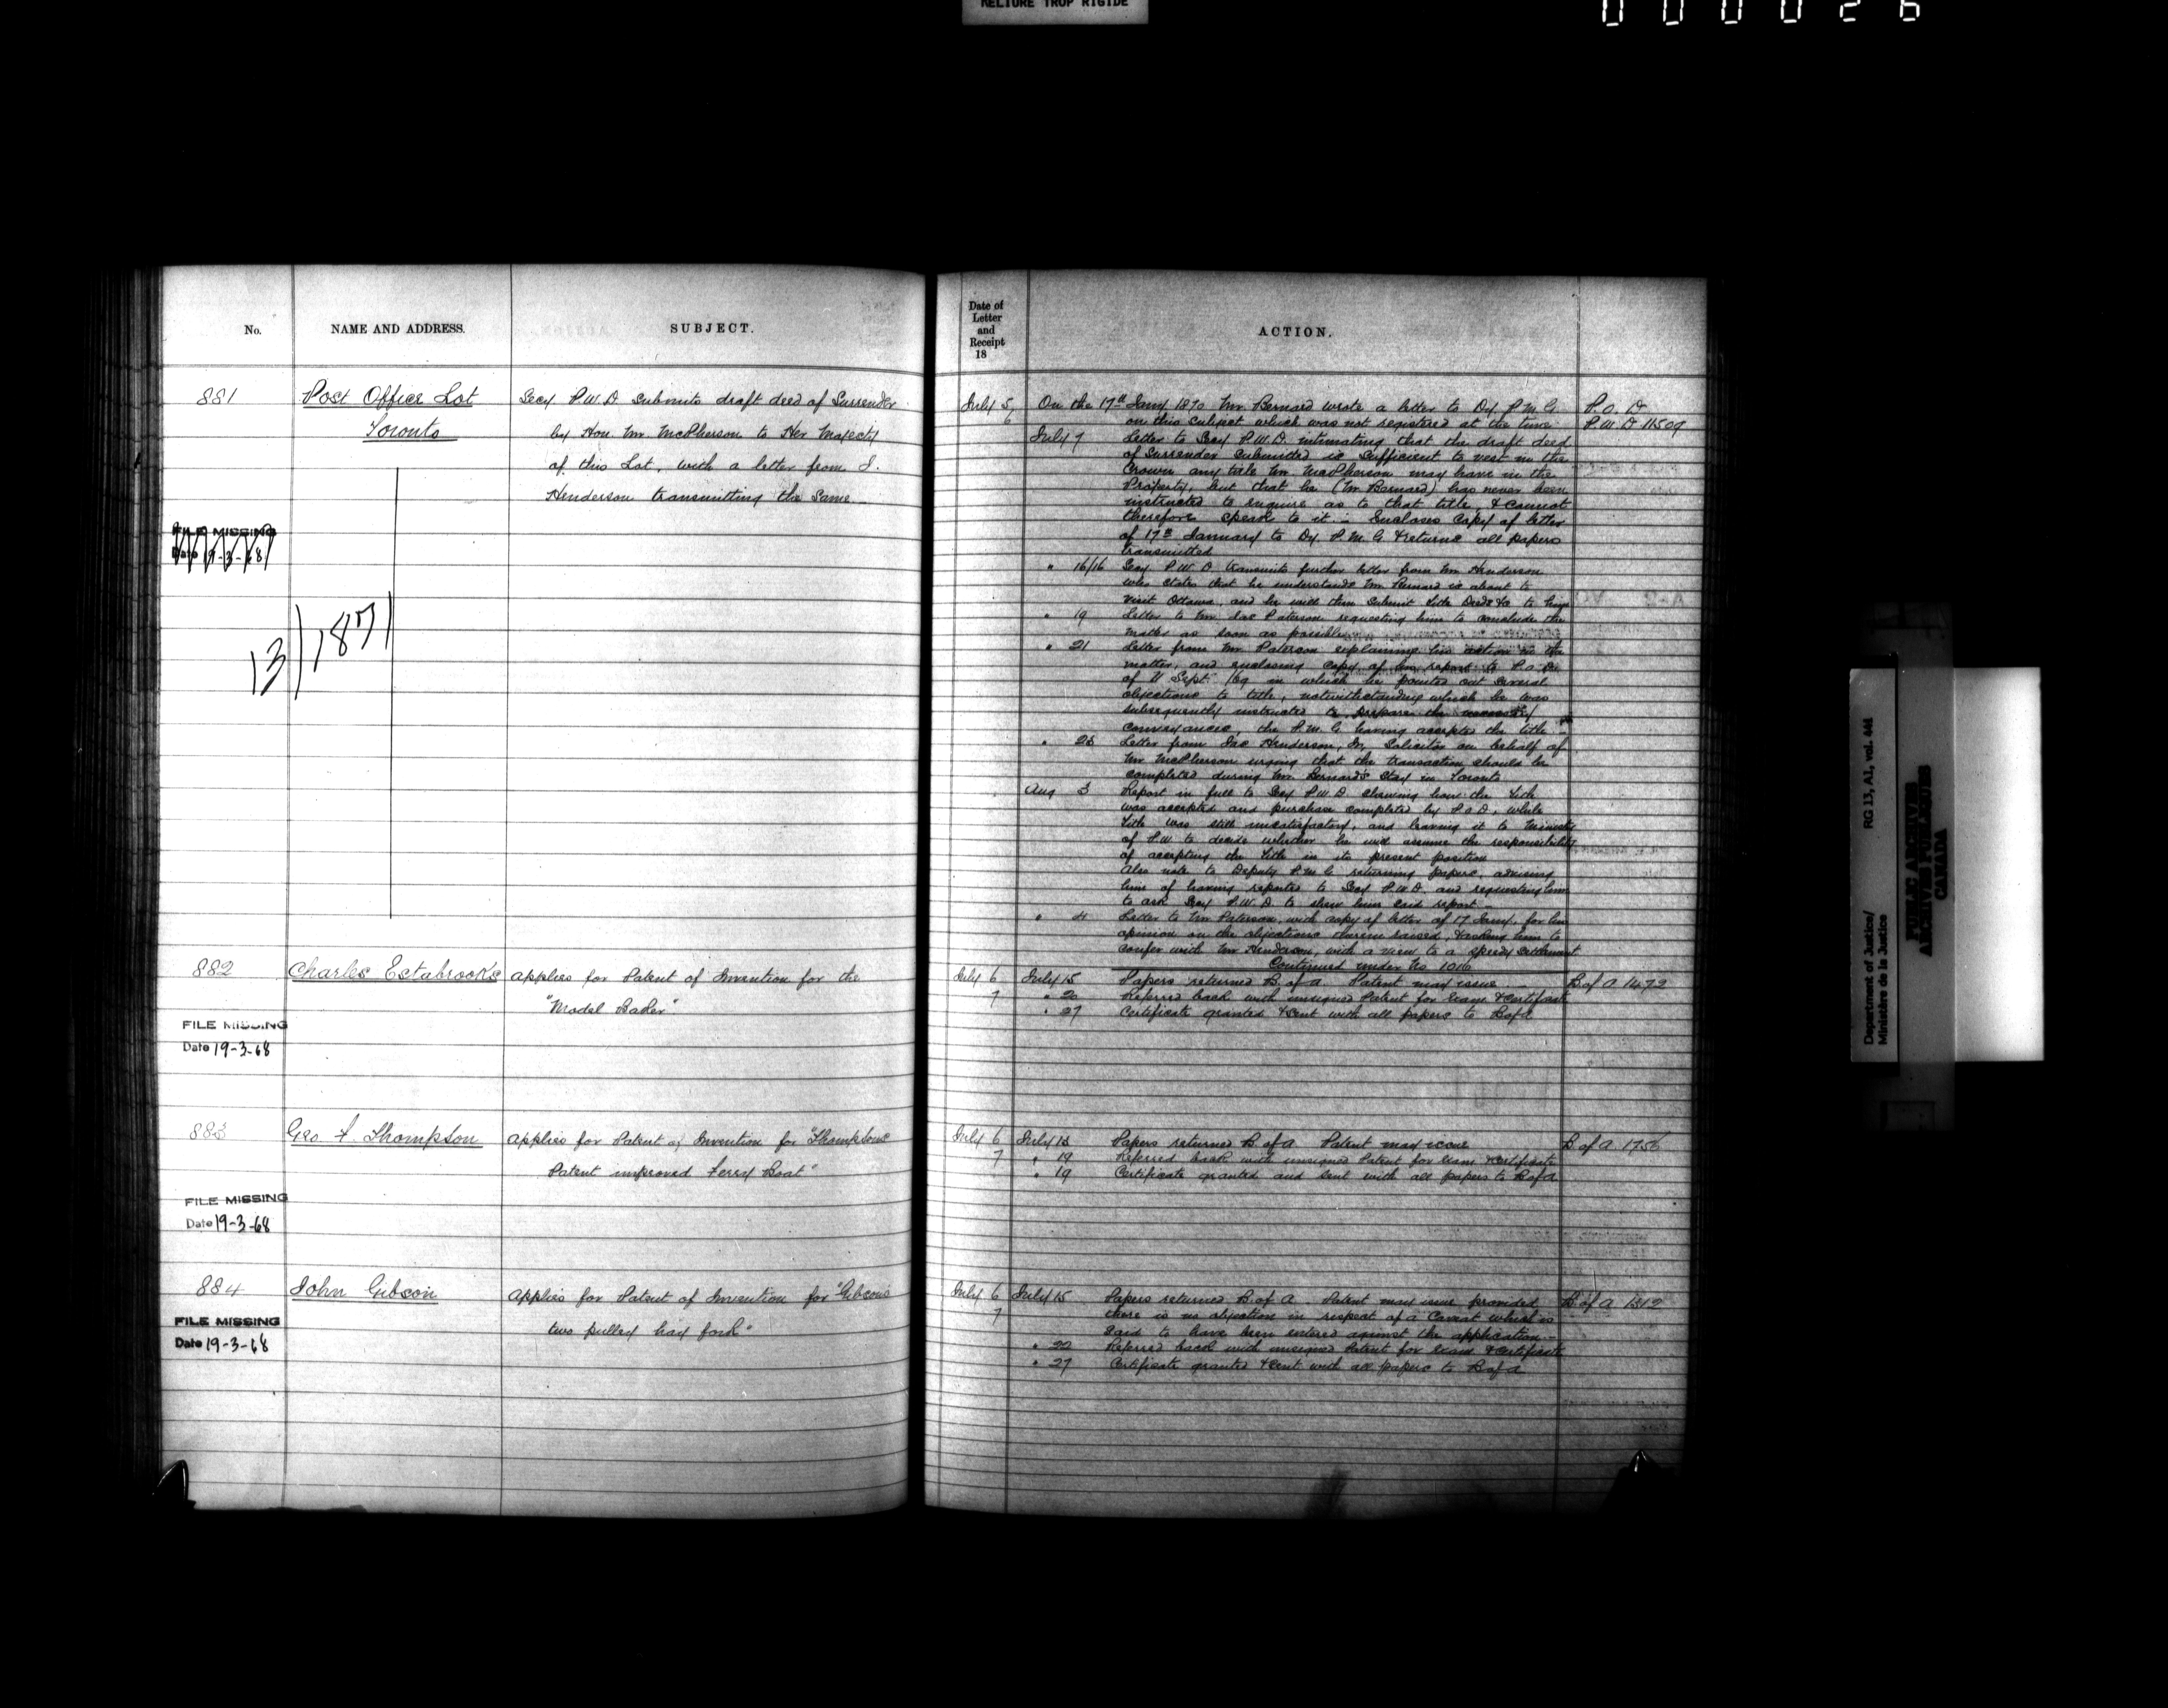 RELIURE TROP RIGIDE
000026
No.
NAME AND ADDRESS.
SUBJECT.
881
Post Office Lot
Toronto
Secy P.W.D submits draft deed of Surrender
by Hon. Mr McPherson to Her Majesty
of this Lot, with a letter from J.
Henderson transmitting the same
FILE MISSING
Date 19-3-68
13/1871
882
Charles Estabrooks
applies for Patent of Invention for the
"Model Baker"
FILE MISSING
Date 19-3-68
883
Geo. F. Thompson
applies for Patent of Invention for "Thompsons
Patent improved Ferry Boat"
FILE MISSING
Date 19-3-68
884
John Gibson
applies for Patent of Invention for "Gibson's
two pulley hay fork"
FILE MISSING
Date 19-3-68
Date of
Letter
and
Receipt
18
ACTION.
July 5 On the 17th Jany 1870 Mr Bernard wrote a letter to Dy P.M.G. P.O.D
6 on this subject which was not registered at the time P.W.D 11509
July 7 Letter to Secy P.W.D. intimating that the draft deed
of Surrender submitted is sufficient to vest in the
Crown any title Mr McPherson may have in the
Property, but that he (Mr Bernard) has never been
instructed to enquire as to that title, & cannot
therefore speak to it - Encloses copy of letter
of 17th January to Dy. P.M.G & returns all papers
transmitted
" 16/16 Secy P.W.D transmits further letter from Mr Henderson
who states that he understands Mr Bernard is about to
visit Ottawa, and he will then submit title Deeds &c to him
" 19 Letter to Mr Jas Paterson requesting him to conclude the
matter as soon as possible
" 21 Letter from Mr Paterson explaining his action in the
matter, and enclosing copy of his report to P.O.D.
of 11 Sept. /69 in which he pointed out several
objections to title, notwithstanding which he was
subsequently instructed to prepare the necessary
conveyances, the P.M.G having accepted the title
" 23 Letter from Jas Henderson, Jr, Solicitor on behalf of
Mr McPherson urging that the transaction should be
completed during Mr Bernard's stay in Toronto
Aug 3 Report in full to Secy P.W.D showing how the title
was accepted and purchase completed by P.O.D, while
title was still unsatisfactory, and leaving it to Minister
of P.W. to decide whether he will assume the responsibility
of accepting the title in its present position
Also note to Deputy P.M.G returning papers, advising
him of having reported to Secy P.W.D. and requesting him
to ask Secy P.W.D to shew him said report -
" 4 Letter to Mr Paterson, with copy of letter of 17 Jany, for his
opinion on the objections therein raised, & asking him to
confer with Mr Henderson, with a view to a speedy settlement
Continued under No 1016
July 6 July 15 Papers returned B. of A Patent may issue B. of A 1472
7 " 20 Referred back with unsigned Patent for exam & certificate
" 27 Certificate granted & sent with all papers to B of A
July 6 July 13 Papers returned B. of A Patent may issue B of A 1756
7 " 19 Referred back with unsigned Patent for exam & certificate
" 19 Certificate granted and sent with all papers to B of A
July 6 July 15 Papers returned B. of A. Patent may issue provided B. of A 1312
7 there is no objection in respect of a Caveat which is
said to have been entered against the application -
" 22 Referred back with unsigned Patent for exam & certificate
" 27 Certificate granted & sent with all papers to B of A
Department of Justice/ RG 13, A1, vol. 441
Ministère de la Justice
PUBLIC ARCHIVES
ARCHIVES PUBLIQUES
CANADA